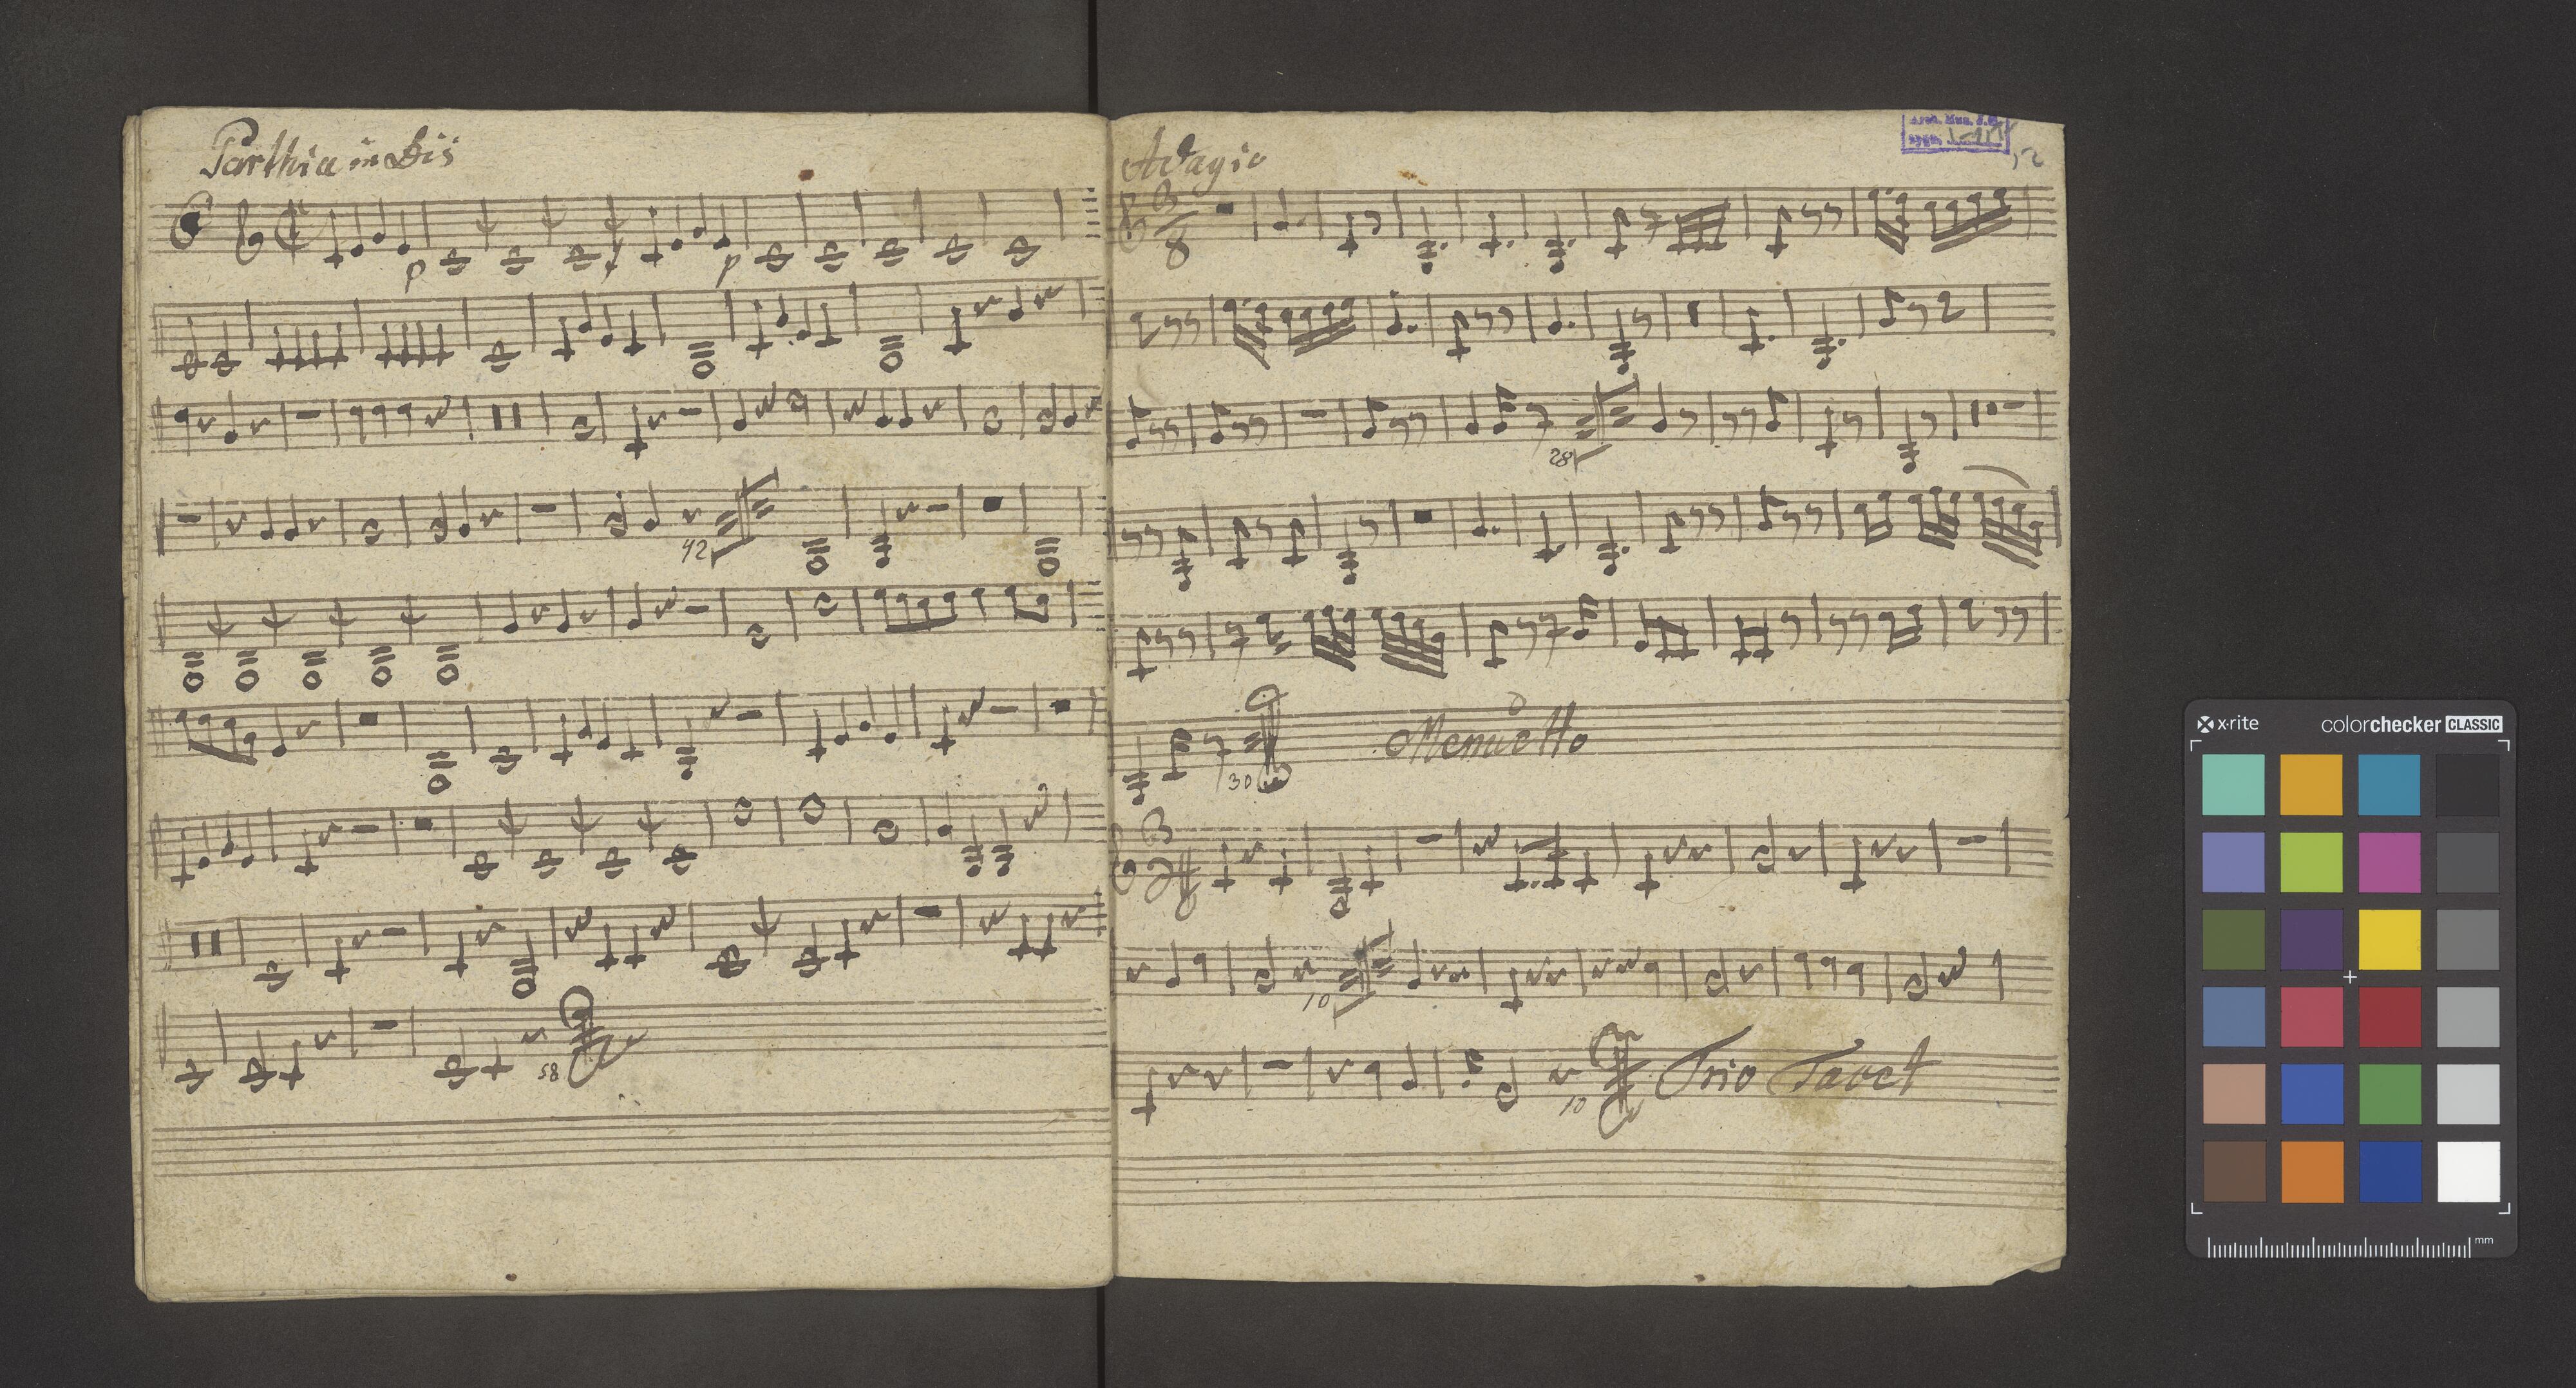 Parthia in Dis
p
f
p
42
58
Adagio
3
8
28
30
Menuetto
3
10
10
Trio Tacet
x-rite
colorchecker CLASSIC
mm